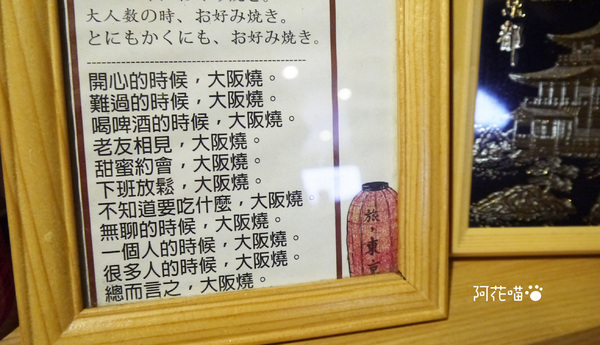 大人数の時、お好み焼き。
とにもかくにも、お好み焼き。
開心的時候，大阪燒。
難過的時候，大阪燒。
喝啤酒的時候，大阪燒。
老友相見，大阪燒。
甜蜜約會，大阪燒。
下班放鬆，大阪燒。
不知道要吃什麼，大阪燒。
無聊的時候，大阪燒。
一個人的時候，大阪燒。
很多人的時候，大阪燒。
總而言之，大阪燒。
旅・東京
阿花喵